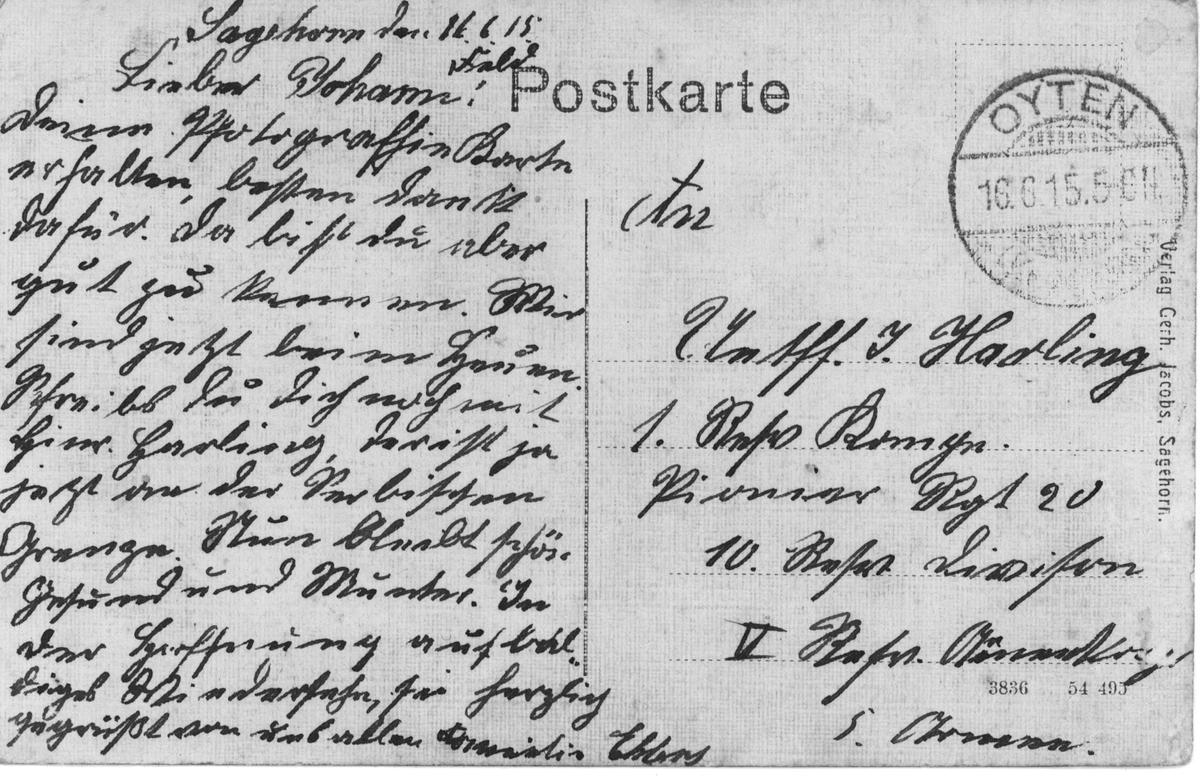 Sagehorn den 16.6.15.
Lieber Johann!
Deine Photograffie Karte
erhalten, besten dankt
dafür. Da bist du aber
gut zu kennen. Wir
sind jetzt beim Heuen.
Schreibs du dich noch mit
Hinr. Harling, der ist ja
jetzt an der Serbischen
Grenze. Nun bleibt schön
Gesund und Munter. In
der Hoffnung auf bal-
diges Wiedersehn, sei herzlich
gegrüßt von uns allen Familie Ehlers
Feld
Postkarte
OYTEN
16.6.15.5-6N.
An
Untff. J. Harling
1. Resv Kompn.
Pionier Rgt 20
10. Resv Divison
V Resv.
5. Armee.
Verlag Gerh. Jacobs, Sagehorn.
3836 54 495